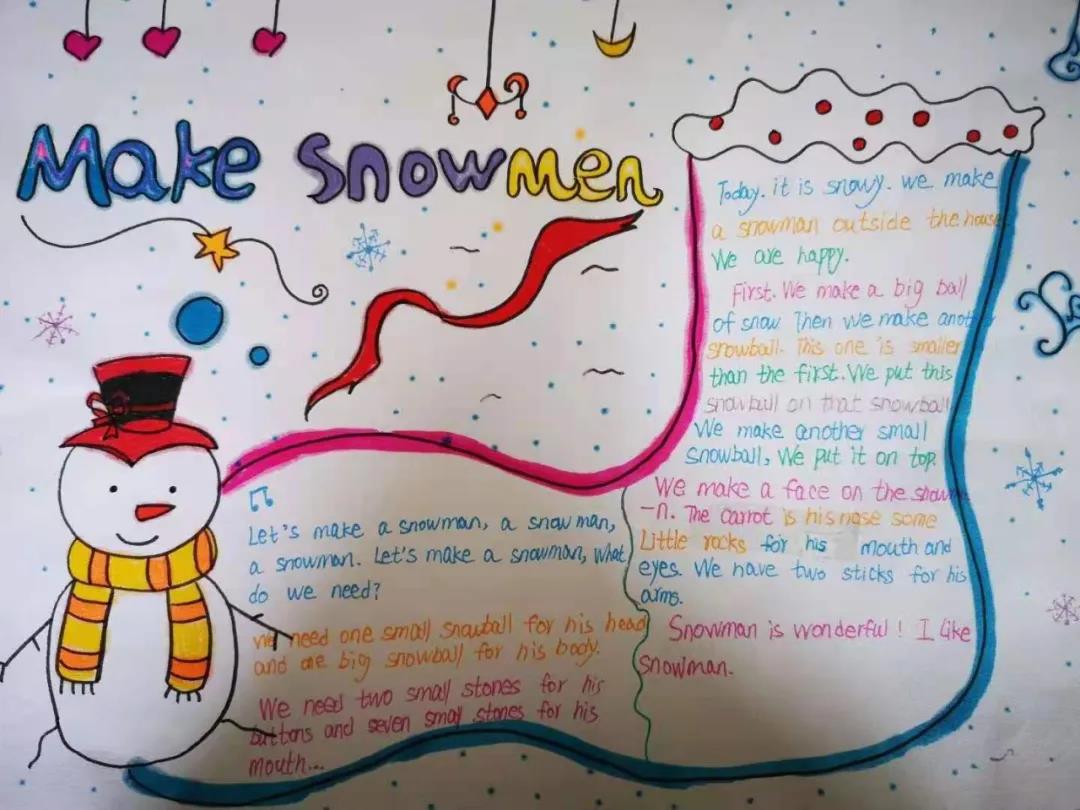 Make Snowmen
Let's make a snowman, a snowman,
a snowman. Let's make a snowman, what
do we need?
We need one small snowball for his head
and one big snowball for his body.
We need two small stones for his
buttons and seven small stones for his
mouth...
Today. it is snowy. we make
a snowman outside the house
We are happy.
First. We make a big ball
of snow. Then we make anoth
snowball. This one is smaller
than the first. We put this
snowball on that snowball
We make another small
snowball, We put it on top.
We make a face on the snowm
-n. The carrot is his nose some
Little rocks for his mouth and
eyes. We have two sticks for his
arms.
Snowman is wonderful! I Like
snowman.